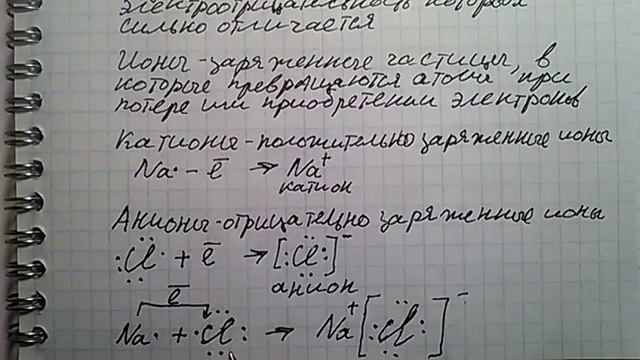 электроотрицательность которых
сильно отличается
Ионы-заряженные частицы, в
которые превращаются атомы при
потере или приобретении электронов
Катионы-положительно заряженные ионы
Na· - ē → Na⁺
катион
Анионы-отрицательно заряженные ионы
:C̈l· + ē → [:C̈l:]⁻
анион
ē
Na· + ·C̈l: → Na⁺[:C̈l:]⁻